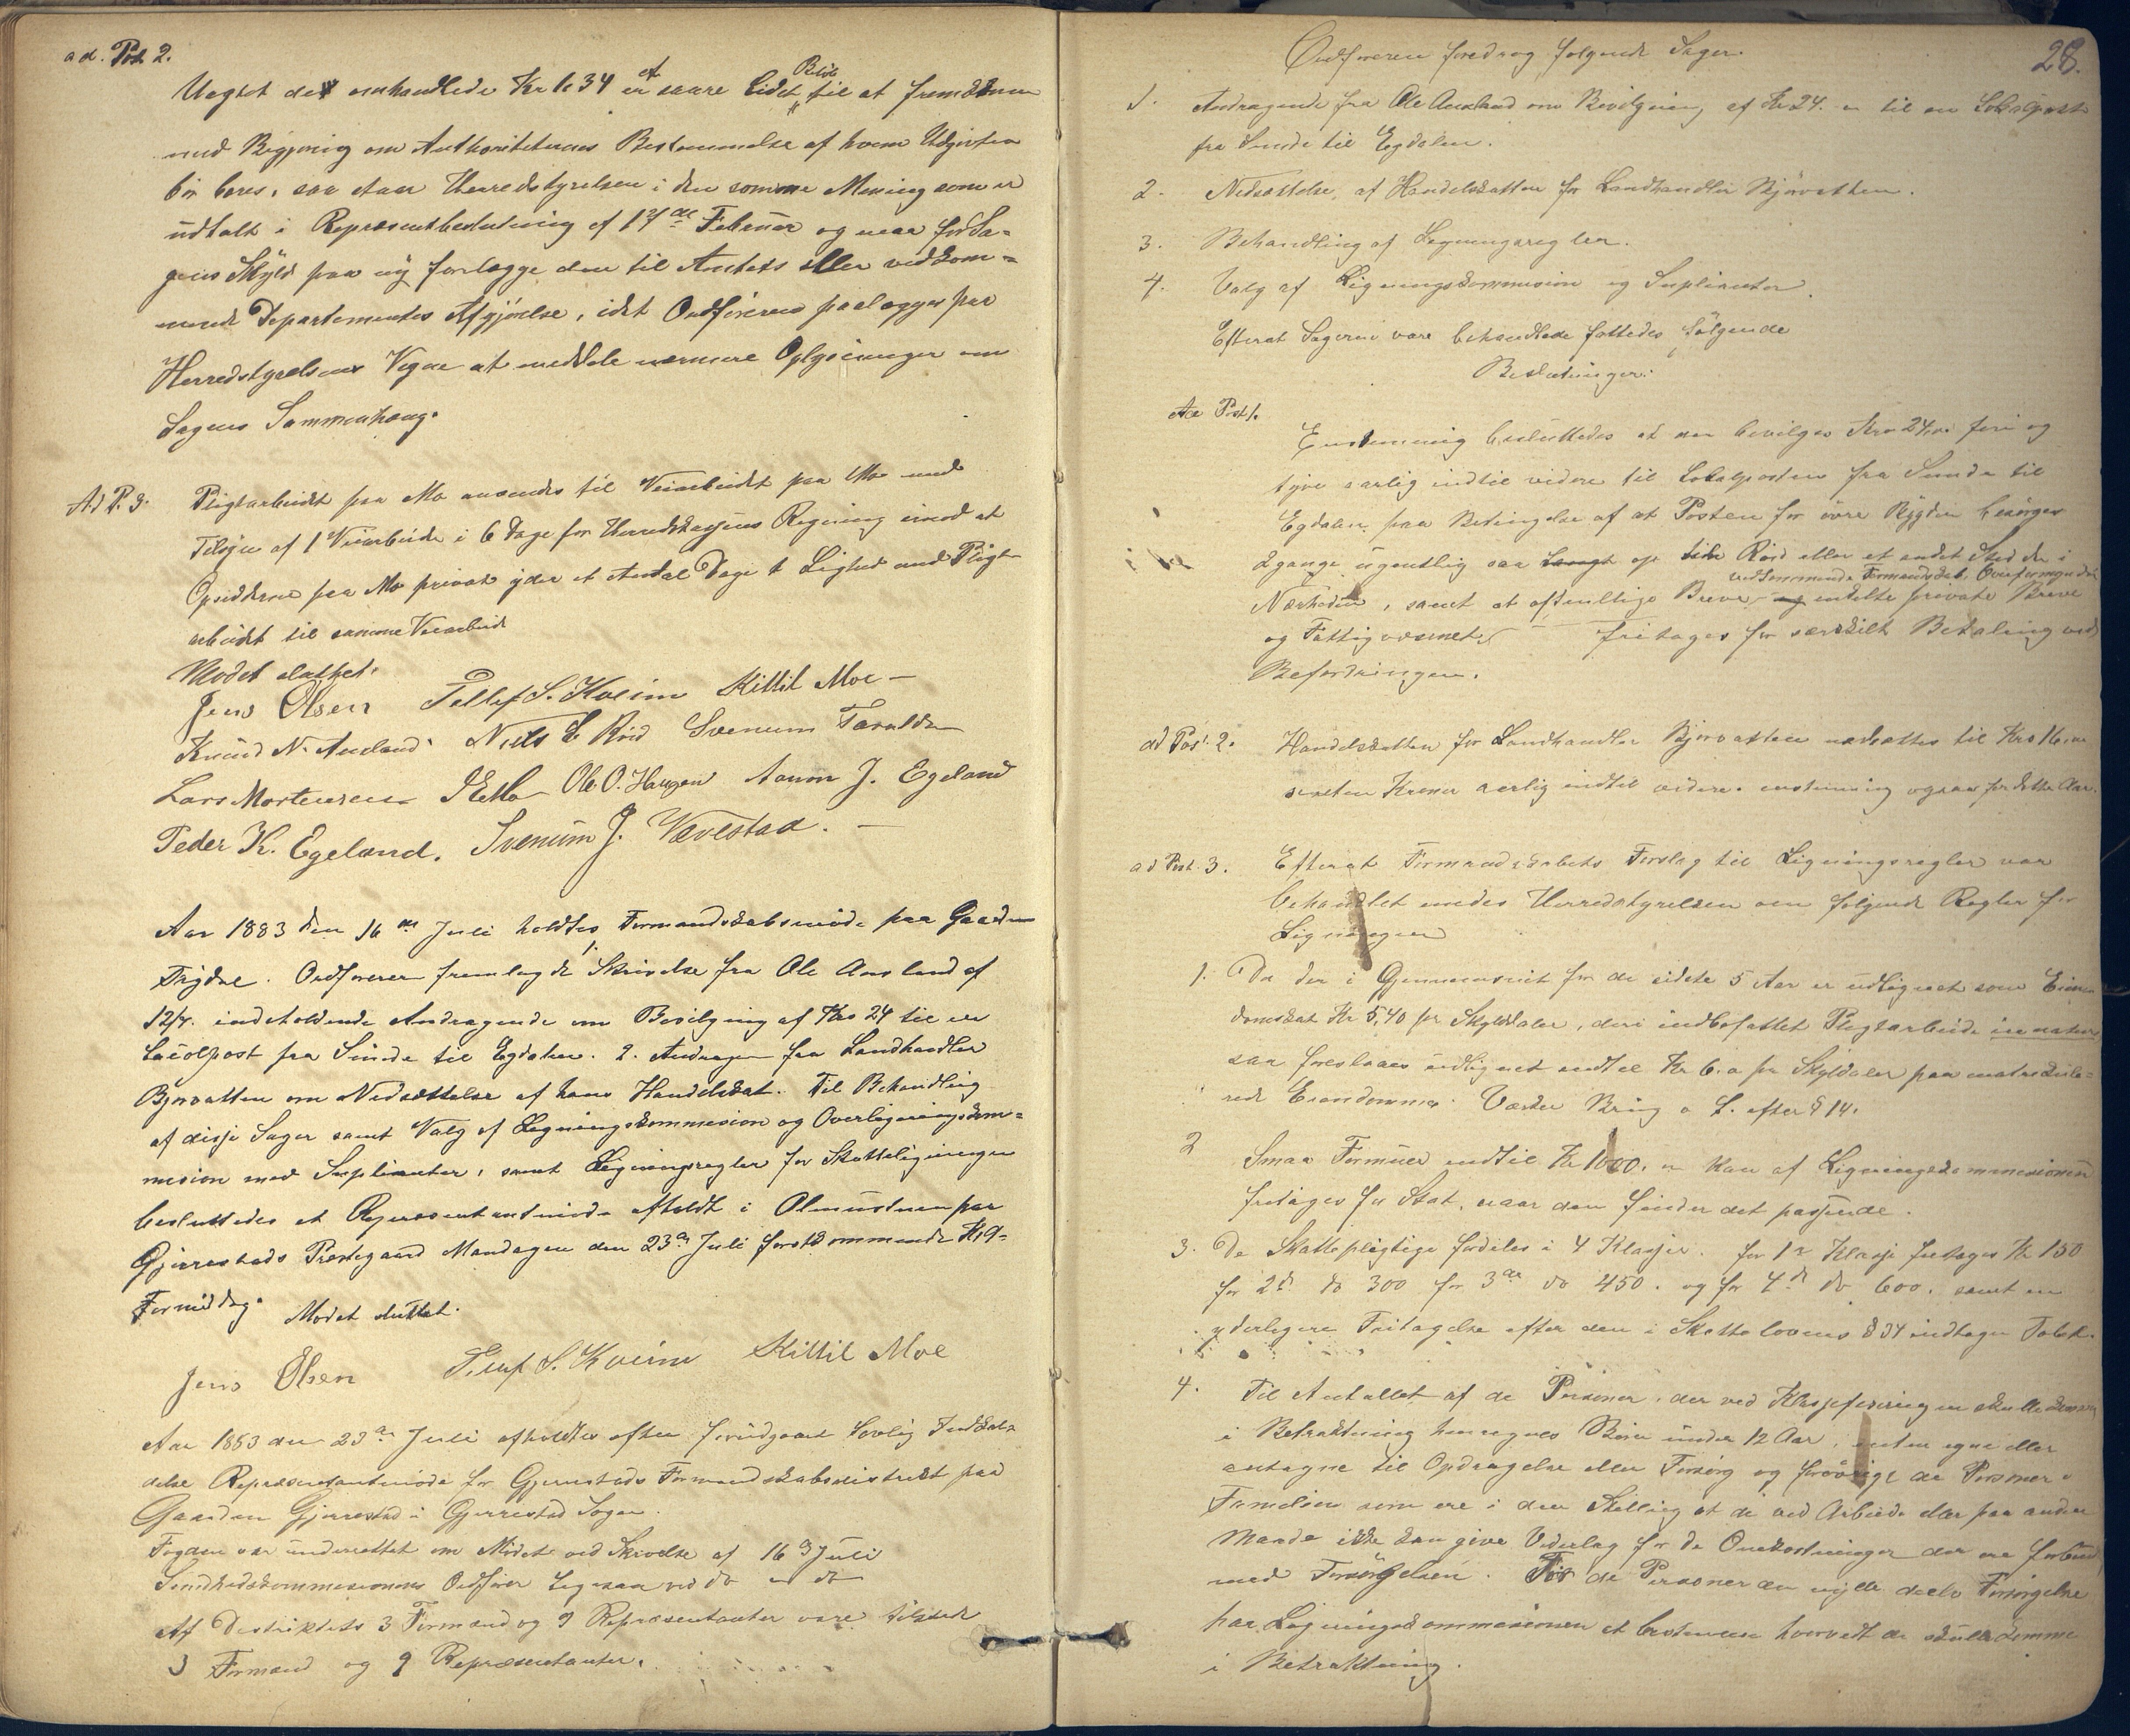 ad. Post 2.
Uagtet det omhandlede Kr 1.34 er et saare lidet Beløb til at fremkomme
med Begjæring om Authoriteternes Bestemmelse af hvem Udgiften
bør bæres, saa staar Herredstyrelsen i den samme Mening som er
udtalt i Repræsentbeslutning af 17de Februar og maa for Sa-
gens Skyld paa ny forelægge den til Amtets eller vedkom-
mende Departementes Afgjørelse, idet Ordføreren paalægges paa
Herredstyrelsens Vegne at meddele nærmere Oplysninger om
Sagens Sammenhæng.
Ad P. 3. Pligtarbeidet paa Mo ansendes til Veiarbeidet paa Mo med
Tilsyn af 1 Veiarbeider i 6 Dage for Herredskassens Regning imod at
Opsidderne paa Mo privat yder et Antal Dage i Lighed med Pligt-
arbeidet til samme Veiarbeid
Mødet sluttet.
Jens Olsen Tellef S. Kveim Kittil Moe
Knud N. Ausland Niels E Röd Svenum Taraldsen
Lars Mortensen Ole O. Haugen Aanon J. Egeland
Peder K. Egeland. Svenum J. Vævestad.
Aar 1883 den 16de Juli holdtes Formandskabsmøde paa Gaarden
Trydal. Ordføreren fremlagde 1. Skrivelse fra Ole Ausland af
12/7. indeholdende Andragende om Bevilgning af Kro 24 til en
Localpost fra Sunde til Egdalen. 2. Andragen fra Landhandler
Bjorvatten om Nedsættelse af hans Handelskat. Til Behandling
af disse Sager samt Valg af Ligningskommission og Overligningskom-
mision med Suplianter, samt Ligningsregler for Skatteligningen
besluttedes et Repræsentantmøde afholdt i Almustuen paa
Gjerrestads Prestegaard Mandagen den 23de Juli førstkommende Kl 9
Formiddag. Mødet sluttet.
Jens Olsen Tellef S. Kveim Kittil Moe
Aar 1883 den 23de Juli afholdtes efter forudgaaet lovlig Indkal-
delse Repræsentantmøde for Gjerrestads Formandskabsdistrikt paa
Gaarden Gjerrestad i Gjerrestad Sogn.
Fogden var underrettet om Mødet ved Skrivelse af 16de Juli
Sundhedskommissionens Ordfører ligesaa ved do
Af Destriktets 3 Formænd og 9 Repræsentanter vare tilstede
3 Formænd og 9 Repræsentanter.
28.
Ordføreren foredrog følgende Sager.
1. Andragende fra Ole Ausland om Bevilgning af Kr 24. til en Lokalpost
fra Sunde til Egdalen.
2. Nedsættelse af Handelskatten for Landhandler Bjorvatten.
3. Behandling af Ligningsregler.
4. Valg af Ligningskommision og Suplianter.
Efterat Sagerne vare behandlede fattedes følgende
Beslutninger:
Ad Post 1.
Enstemmig besluttedes at der bevilges Kro 24,00 fire og
tyve aarlig indtil videre til Lokalposten fra Sunde til
Egdalen, paa Betingelse af at Posten for vore Bygder besørges
2 gange ugentlig saa langt op til Röd eller et andet Sted der i
Nærheden, samt at offentlige Breve, og enkelte private Breve
vedkommende Formandskab, Overformynderi
og Fattigvæsenet fritages for særskilt Betaling ved
Befordringen.
ad Post. 2. Handelskatten for Landhandler Bjorvatten nedsattes til Kro 16,00
sexten Kroner aarlig indtil videre. enstemmig ogsaa for dette Aar.
ad Post. 3. Efterat Formandskabets Forslag til Ligningsregler var
behandlet enedes Herredstyrelsen om følgende Regler for
Ligningen
1. Da der i Gjennemsnit for de sidste 5 Aar er udlignet som Eien-
domskat Kr 5,40 pr Skylddaler, deri indbefattet Pligtarbeide in natura
saa foreslaaes udlignet indtil Kr 6.0 pr Skyldaler paa matrikule-
rede Eiendomme. Værker Brug o l. efter § 14.
2 Smaa Formuer indtil Kr 1000. kan af Ligningskommisionen
fritages for Skat, naar den finder det passende.
3. De Skattepligtige fordeles i 4 Klasser. for 1ste Klasse fritages Kr 150
for 2de do 300 for 3die do 450. og for 4de do 600. samt en
yderligere Fritagelse efter den i Skattelovens § 34 indtagne Tabel.
4. Til Antallet af de Personer, der ved Klassificeringen skulle komme
i Betraktning henregnes Børn under 12 Aar, enten egne eller
antagne til Opdragelse eller Forsørg og forøvrige de Personer i
Familien som ere i den Stilling at de ved Arbeide eller paa anden
Maade ikke kan give Vederlag for de Omkostninger der ere forbundne
med Forsørgelsen. For de Personer der nyde deels Forsørgelse
har Ligningskommissionen at bestemme hvorvidt de skulle komme
i Betraktning.